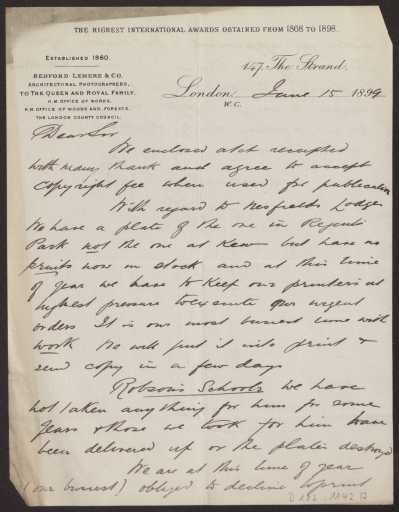 THE HIGHEST INTERNATIONAL AWARDS OBTAINED FROM 1868 TO 1898.
ESTABLISHED 1860.
BEDFORD LEMERE & CO.
ARCHITECTURAL PHOTOGRAPHERS,
TO THE QUEEN AND ROYAL FAMILY,
H.M. OFFICE OF WORKS,
H.M. OFFICE OF WOODS AND FORESTS,
THE LONDON COUNTY COUNCIL.
147, The Strand,
London, June 15 1899
W.C.
Dear Sir
We enclosed a/ct receipted
with many thanks and agree to accept
copyright fee when used for publication
With regard to Nesfields Lodge
We have a plate of the one in Regents
Park not the one at Kew but have no
prints now in stock and at this time
of year we have to keep our printers at
highest pressure to execute our urgent
orders It is our most busiest time with
work We will put it into print &
send copy in a few days
Robsons Schools we have
not taken anything for him for some
years & those we took for him have
been delivered up or the plates destroyed
We are at this time of year
(our busiest) obliged to decline to print